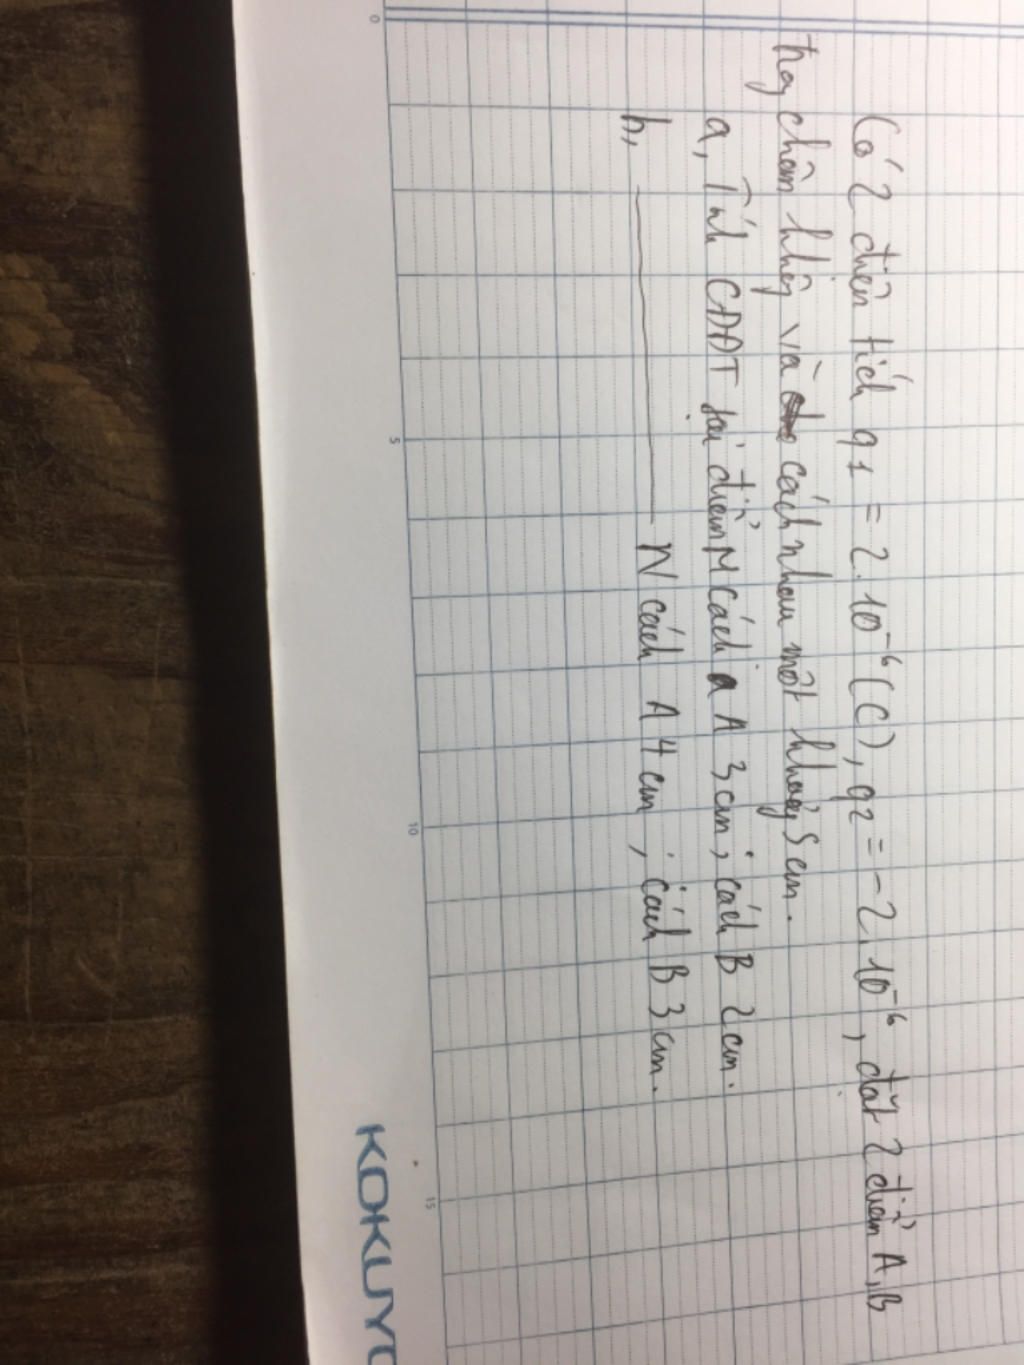 Có 2 điện tích q1 = 2.10⁻⁶ (C), q2 = -2.10⁻⁶, đặt 2 điểm A, B
trg chân không và cách nhau một khoảng 5 cm.
a, Tính CĐĐT tại điểm M cách A 3cm; cách B 2cm.
b, ——— N cách A 4 cm; cách B 3 cm.
0
5
10
15
KOKUYO